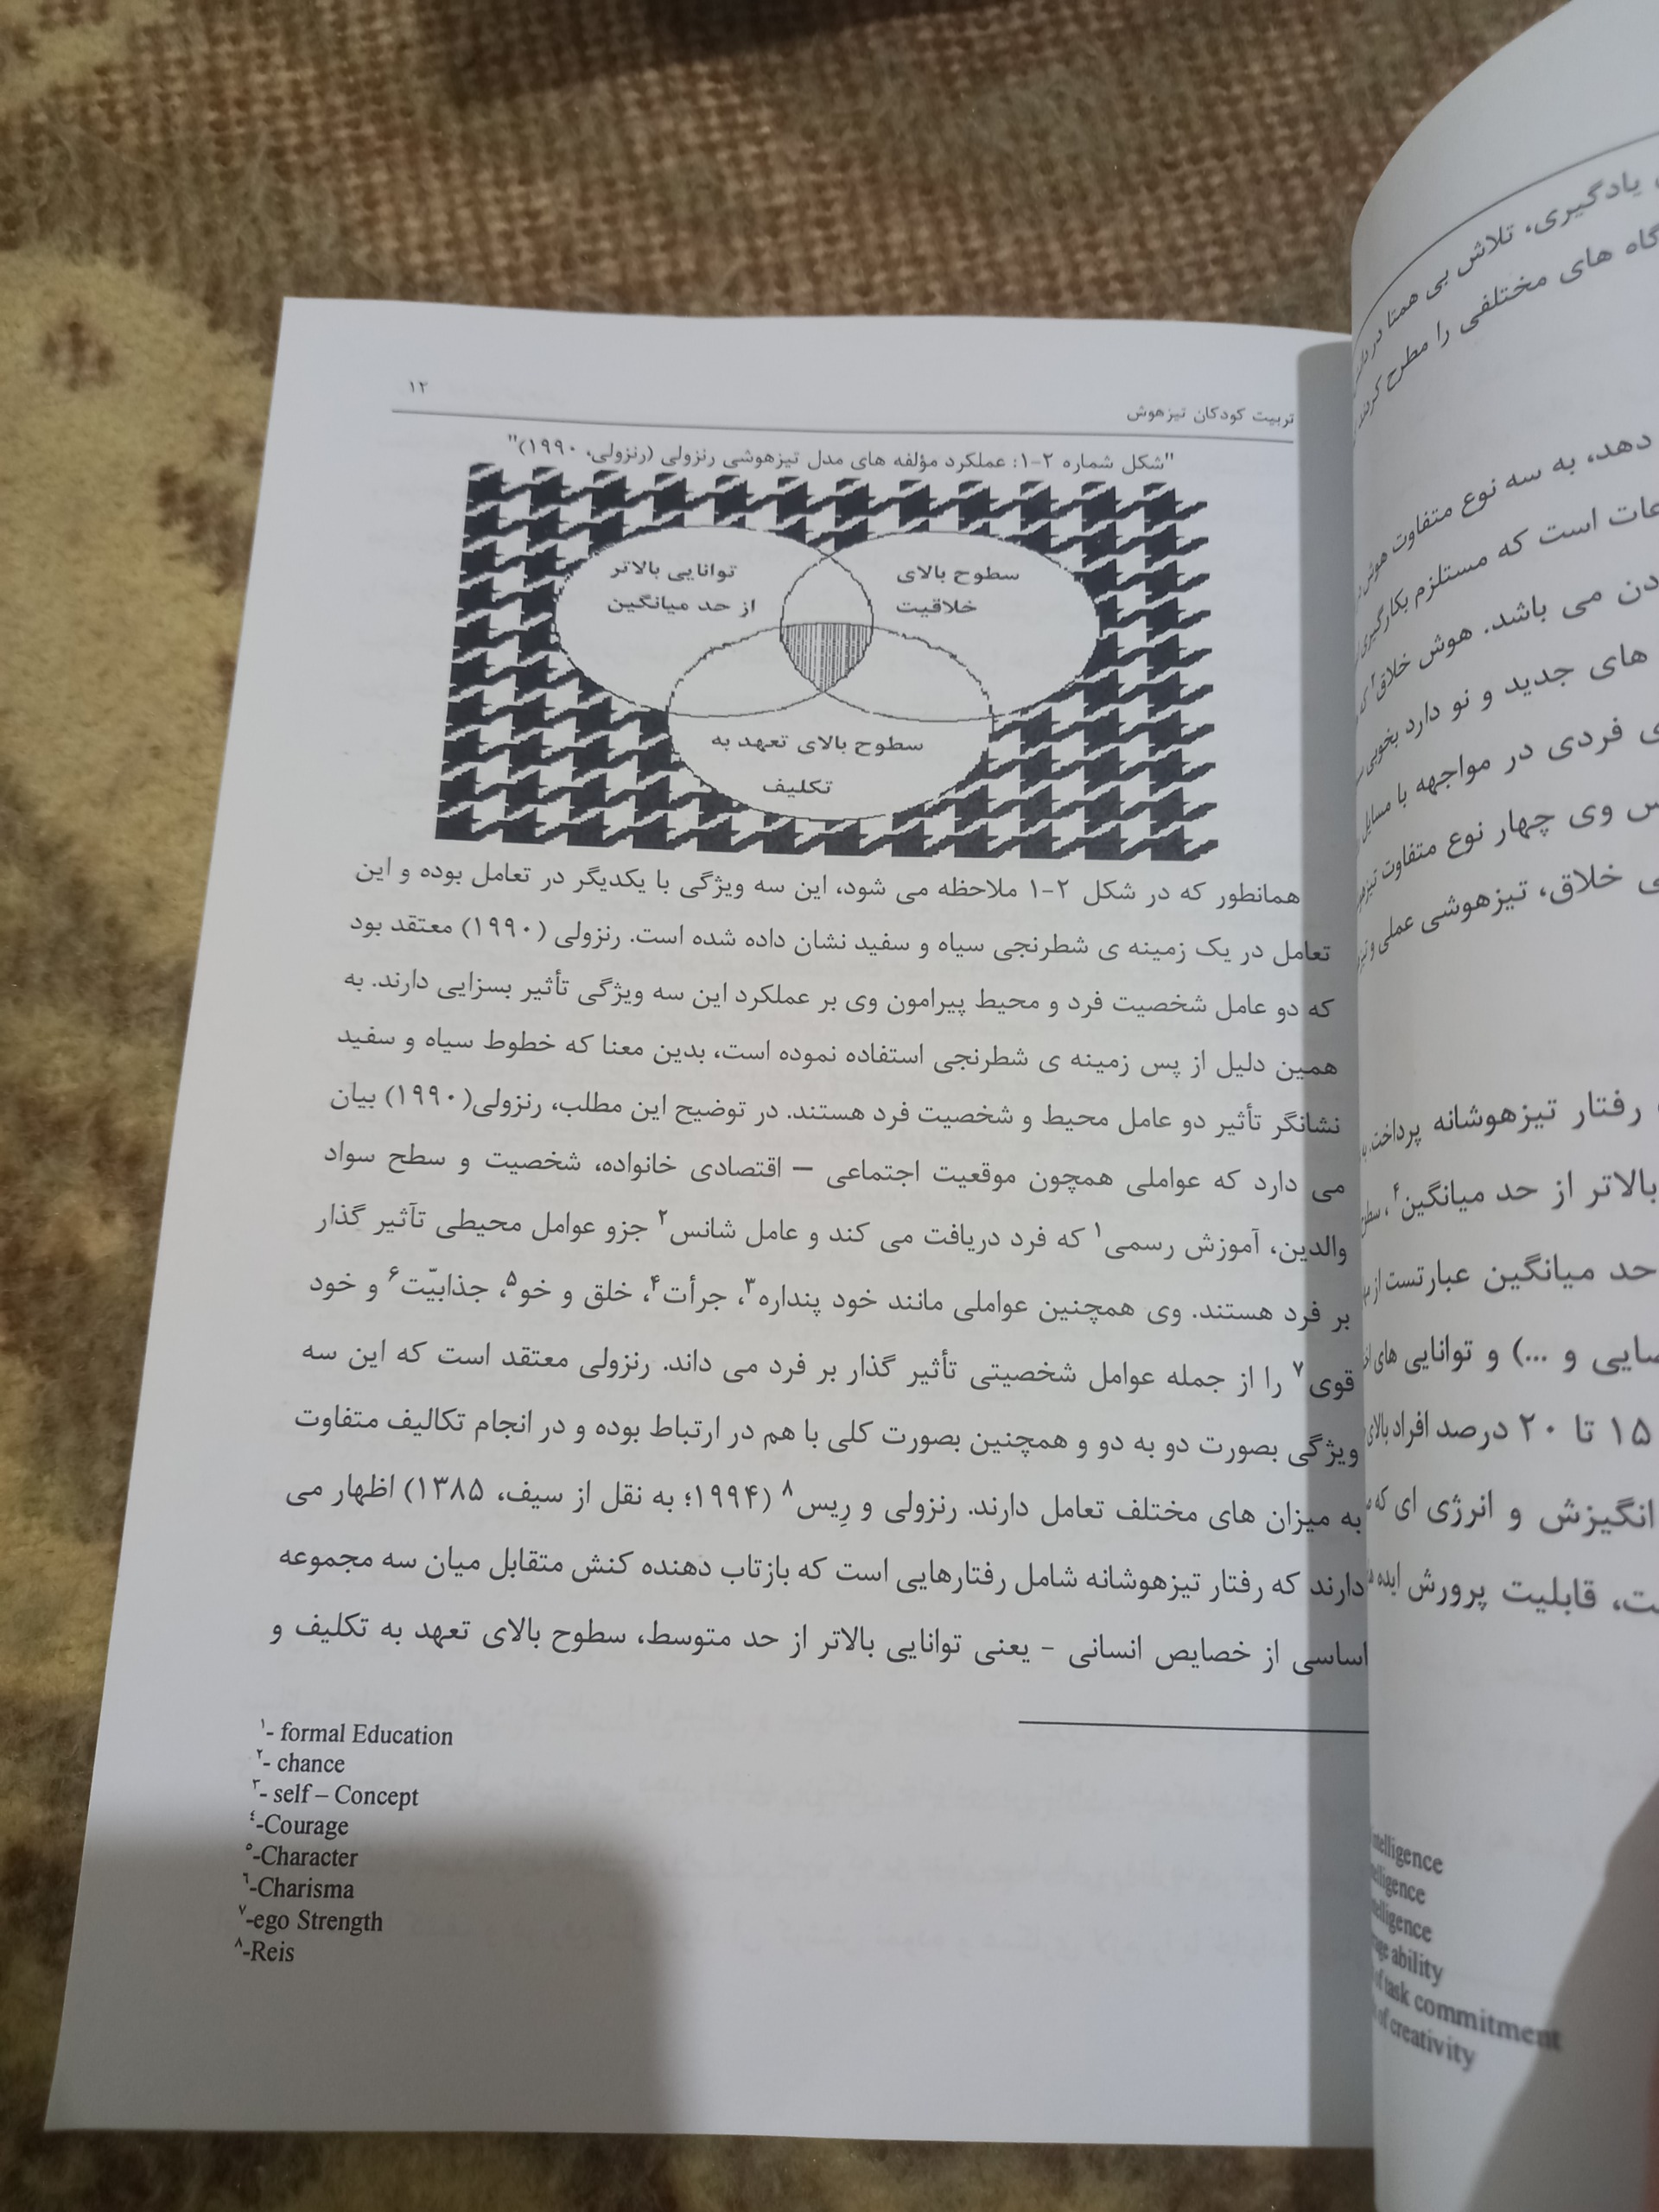 تربیت کودکان تیزهوش
۱۲
"شکل شماره ۲-۱: عملکرد مؤلفه های مدل تیزهوشی رنزولی (رنزولی، ۱۹۹۰)"
سطوح بالای
خلاقیت
توانایی بالاتر
از حد میانگین
سطوح بالای تعهد به
تکلیف
همانطور که در شکل ۲-۱ ملاحظه می شود، این سه ویژگی با یکدیگر در تعامل بوده و این
تعامل در یک زمینه ی شطرنجی سیاه و سفید نشان داده شده است. رنزولی (۱۹۹۰) معتقد بود
که دو عامل شخصیت فرد و محیط پیرامون وی بر عملکرد این سه ویژگی تأثیر بسزایی دارند. به
همین دلیل از پس زمینه ی شطرنجی استفاده نموده است، بدین معنا که خطوط سیاه و سفید
نشانگر تأثیر دو عامل محیط و شخصیت فرد هستند. در توضیح این مطلب، رنزولی(۱۹۹۰) بیان
می دارد که عواملی همچون موقعیت اجتماعی – اقتصادی خانواده، شخصیت و سطح سواد
والدین، آموزش رسمی۱ که فرد دریافت می کند و عامل شانس۲ جزو عوامل محیطی تآثیر گذار
بر فرد هستند. وی همچنین عواملی مانند خود پنداره۳، جرأت۴، خلق و خو۵، جذابیّت۶ و خود
قوی۷ را از جمله عوامل شخصیتی تأثیر گذار بر فرد می داند. رنزولی معتقد است که این سه
ویژگی بصورت دو به دو و همچنین بصورت کلی با هم در ارتباط بوده و در انجام تکالیف متفاوت
به میزان های مختلف تعامل دارند. رنزولی و رِیس۸ (۱۹۹۴؛ به نقل از سیف، ۱۳۸۵) اظهار می
دارند که رفتار تیزهوشانه شامل رفتارهایی است که بازتاب دهنده کنش متقابل میان سه مجموعه
اساسی از خصایص انسانی - یعنی توانایی بالاتر از حد متوسط، سطوح بالای تعهد به تکلیف و
۱- formal Education
۲- chance
۳- self – Concept
٤-Courage
٥-Character
٦-Charisma
۷-ego Strength
۸-Reis
یادگیری، تلاش بی همتا در
گاه های مختلفی را مطرح کردند
دهد، به سه نوع متفاوت هوش
است که مستلزم بکارگیری
می باشد. هوش خلاق۲
های جدید و نو دارد بخوبی
فردی در مواجهه با مسایل
وی چهار نوع متفاوت
خلاق، تیزهوشی عملی و
رفتار تیزهوشانه پرداخت.
بالاتر از حد میانگین۴،
حد میانگین عبارتست از
و ...) و توانایی های
۱۵ تا ۲۰ درصد افراد بالای
انگیزش و انرژی ای که
قابلیت پرورش ایده
ability
of task commitment
of creativity